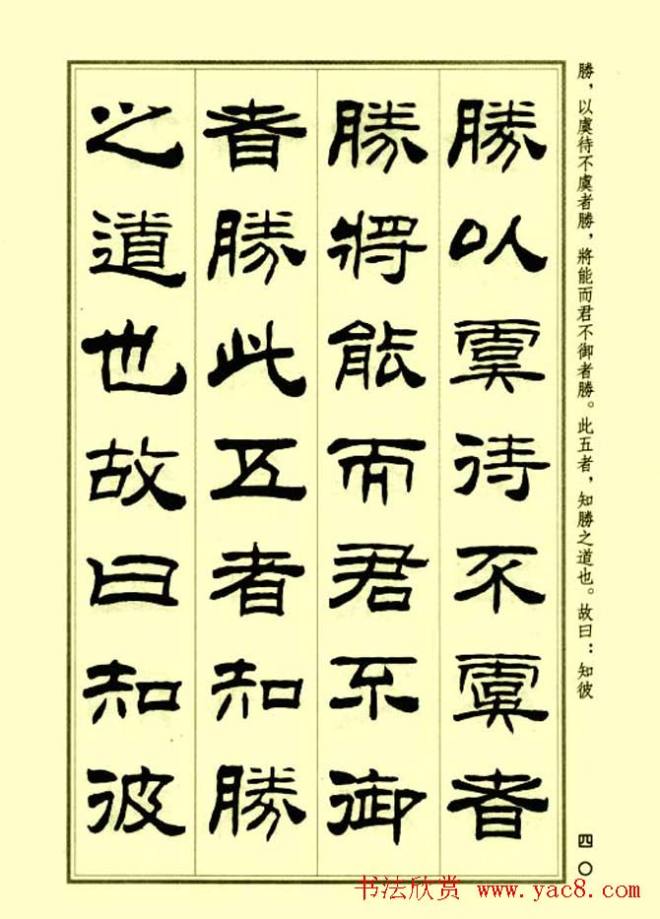 勝以虞待不虞者
勝將能而君不御
者勝此五者知勝
之道也故曰知彼
勝，以虞待不虞者勝，將能而君不御者勝。此五者，知勝之道也。故曰：知彼
四〇
书法欣赏 www.yac8.com